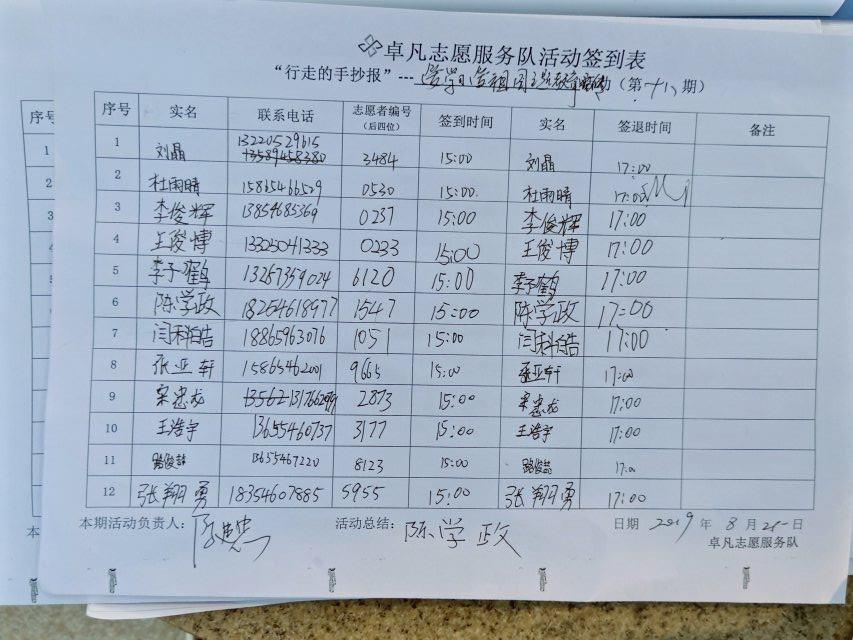 卓凡志愿服务队活动签到表
“行走的手抄报”---爱学习 爱祖国主题教育活动（第十八期）
序号 实名 联系电话 志愿者编号（后四位） 签到时间 实名 签退时间 备注
1 刘晶 13220529615 13589458380 3484 15:00 刘晶 17:00
2 杜雨晴 15865466529 0530 15:00 杜雨晴 17:00
3 李俊辉 13854685369 0237 15:00 李俊辉 17:00
4 王俊博 13325041333 0233 15:00 王俊博 17:00
5 李子鹤 13267359024 6120 15:00 李子鹤 17:00
6 陈学政 18254618977 1547 15:00 陈学政 17:00
7 闫科皓 18865963076 1051 15:00 闫科皓 17:00
8 张亚轩 15865462001 9665 15:00 张亚轩 17:00
9 宋忠龙 2873 15:00 宋忠龙 17:00
10 王浩宇 13655460737 3177 15:00 王浩宇 17:00
11 路俊喆 13655467220 8123 15:00 路俊喆 17:00
12 张翔勇 18354607885 5955 15:00 张翔勇 17:00
本期活动负责人： 活动总结：陈学政 日期 2019 年 8 月 21 日
卓凡志愿服务队
序号
1
2
3
4
本